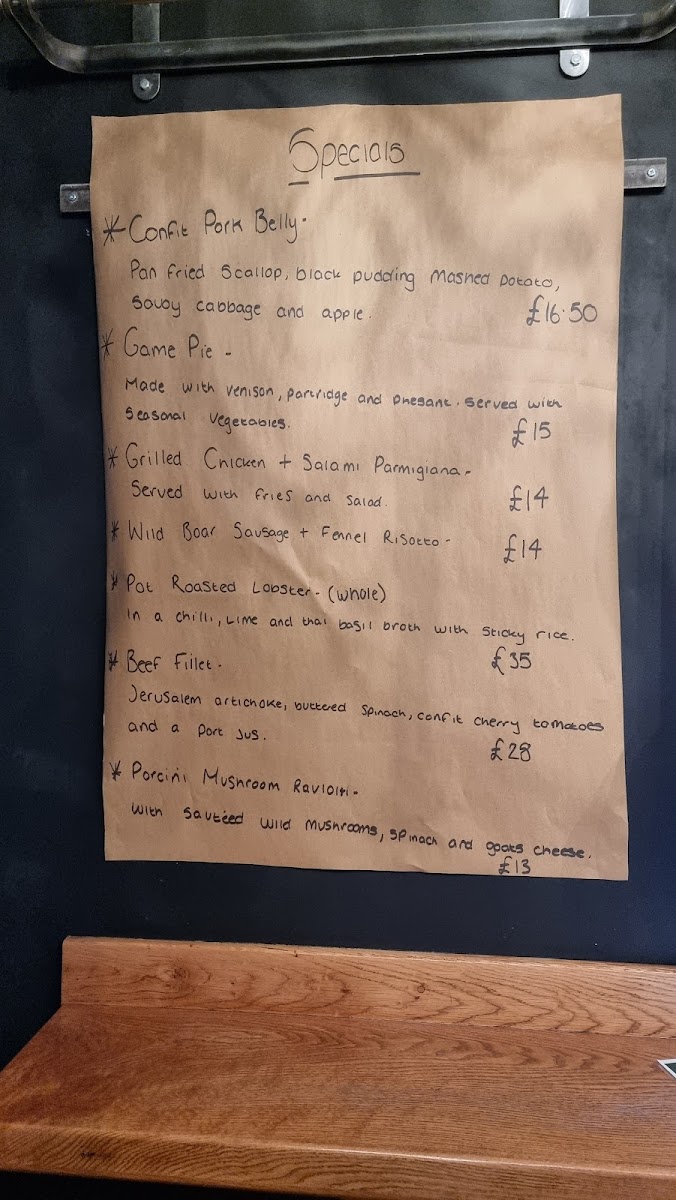 Specials
* Confit Pork Belly -
Pan fried scallop, black pudding mashed potato,
savoy cabbage and apple.
£16.50
* Game Pie -
Made with venison, partridge and phesant. served with
seasonal vegetables.
£15
* Grilled Chicken + Salami Parmigiana -
Served with fries and salad.
£14
* Wild Boar Sausage + Fennel Risotto - £14
* Pot Roasted Lobster - (whole)
In a chilli, lime and thai basil broth with sticky rice.
£35
* Beef Fillet -
Jerusalem artichoke, buttered spinach, confit cherry tomatoes
and a port jus.
£28
* Porcini Mushroom Ravioli -
with sautéed wild mushrooms, spinach and goats cheese.
£13